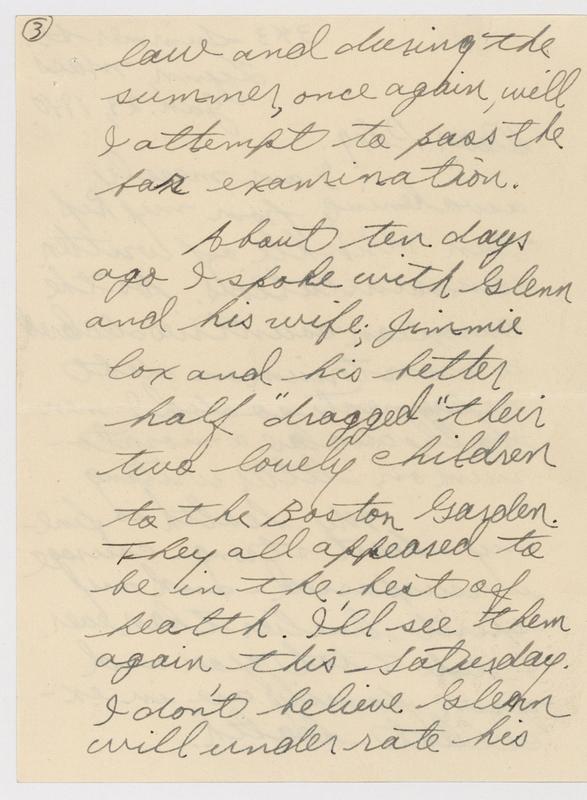 3
law and during the
summer, once again, will
I attempt to pass the
bar examination.
About ten days
ago I spoke with Glenn
and his wife; Jimmie
Cox and his better
half "dragged" their
two lovely children
to the Boston Garden.
They all appeared to
be in the best of
health. I'll see them
again this Saturday.
I don't believe Glenn
will under rate his